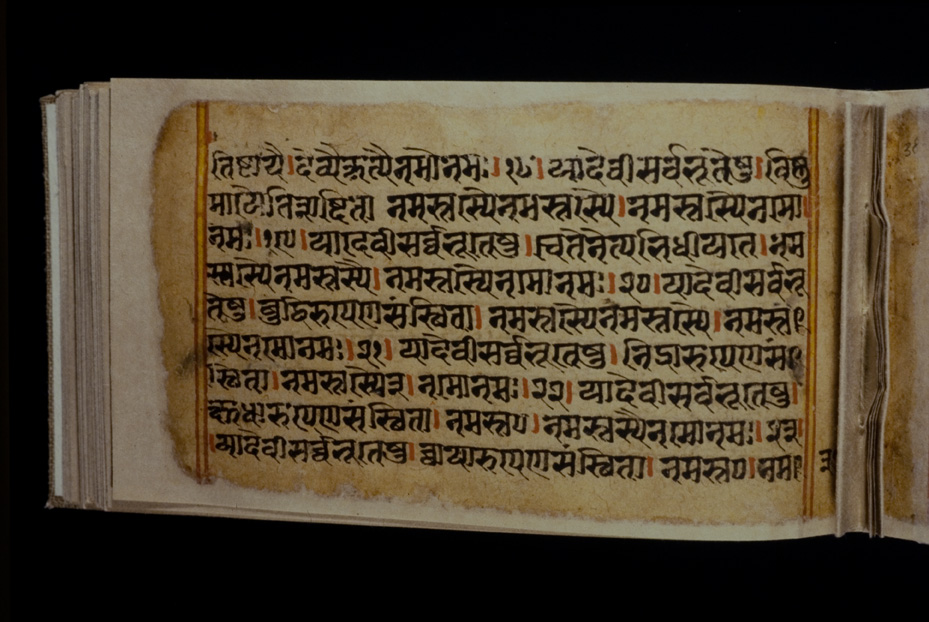 तिष्टायै।देव्यैकृत्यैनमोनमः।१८।यादेवीसर्वभूतेषु।विष्णु
मायेतिशब्दिता नमस्तस्यैनमस्तस्यै।नमस्तस्यैनमो
नमः।१९।यादेवीसर्वभूतेषु।चेतनेत्यभिधीयते।नम
स्तस्यैनमस्तस्यै।नमस्तस्यैनमोनमः।२०।यादेवीसर्वभू
तेषु।बुद्धिरूपेणसंस्थिता।नमस्तस्यैनमस्तस्यै।नमस्त
स्यैनमोनमः।२१।यादेवीसर्वभूतेषु।निद्रारूपेणसं
स्थिता।नमस्तस्यै३।नमोनमः।२२।यादेवीसर्वभूतेषु।
क्षुधारूपेणसंस्थिता।नमस्त०।नमस्तस्यैनमोनमः।२३।
यादेवीसर्वभूतेषु।छायारूपेणसंस्थिता।नमस्त०।नमो